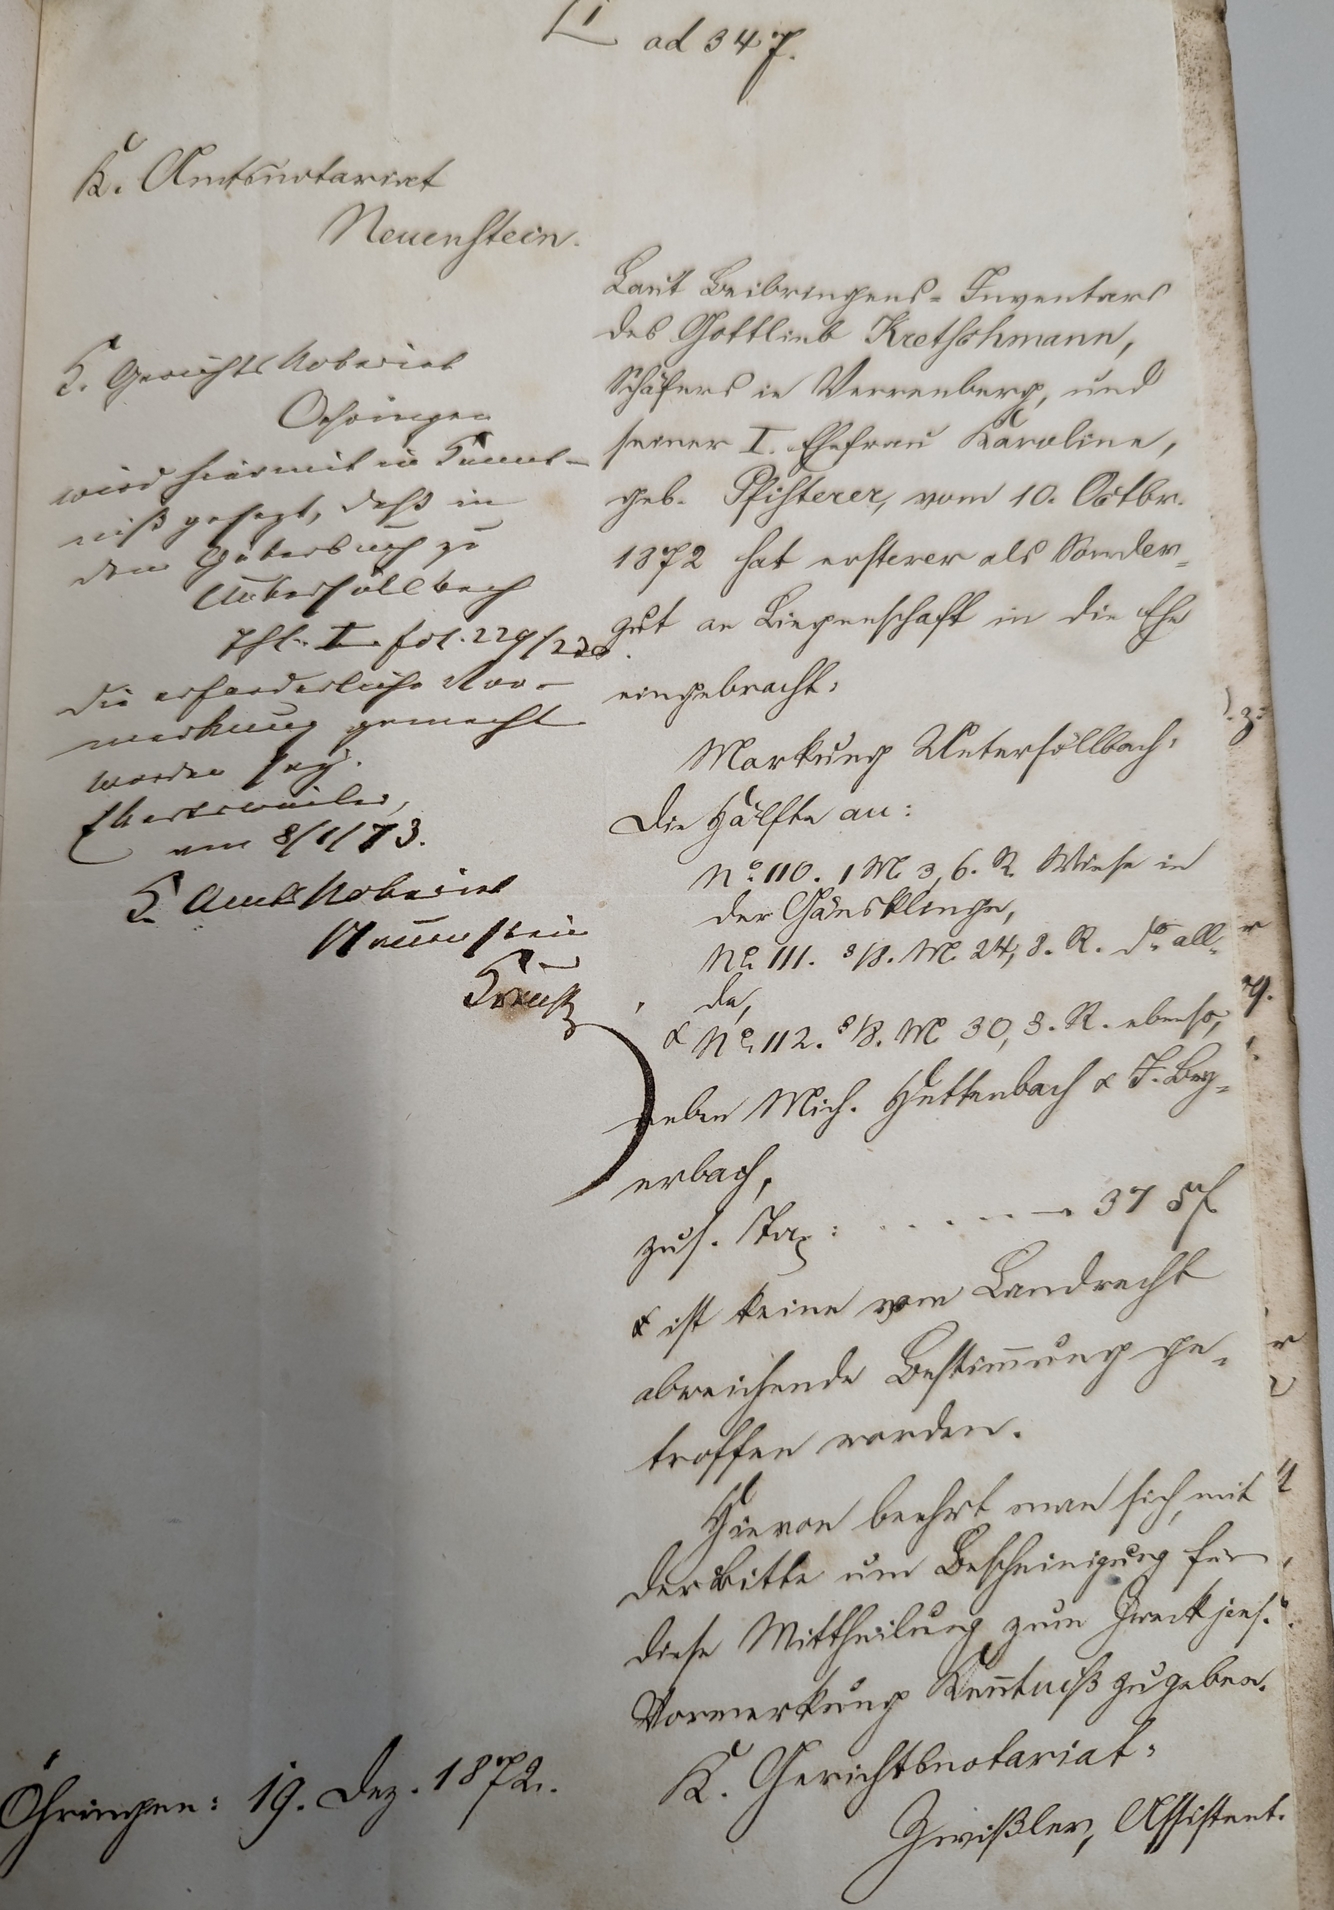 ad 347.
K. Amtsnotariat
Neuenstein.
K. Gerichts Notariat
Oehringen
wird hiermit in Kennt-
niß gesezt, daß in
dem Güterbuch zu
Untersöllbach
Thl. I fol. 229/230
die erforderliche Vor-
merkung gemacht
worden sey.
am 8/1/73.
K. Amts Notariat
Neuenstein
Laut Beibringens-Inventars
des Gottlieb Kretschmann,
Schäfers in Verrenberg, und
seiner I. Ehefrau Karoline,
geb. Pfisterer, vom 10. Octbr.
1872 hat ersterer als Sonder-
gut an Liegenschaft in die Ehe
eingebracht:
Markung Untersöllbach:
Die Hälfte an:
No. 110. 1 M 3,6. R. Wiese in
der Gänsklinge,
No. 111. 3/8. M. 24,8. R. do. all-
da,
& No. 112. 3/8. M 30,3. R. ebenso,
neben Mich. Huttenbach & F. Bey-
erbach,
zus. Tax: 375 f
& ist keine vom Landrecht
abweichende Bestimmung ge-
troffen worden.
Hievon beehrt man sich, mit
der Bitte um Bescheinigung für
diese Mittheilung zum Zweck jens.
Vormerkung Kenntniß zu geben.
Öhringen: 19. Dez. 1872.
K. Gerichtsnotariat:
Zwißler, Assistent.